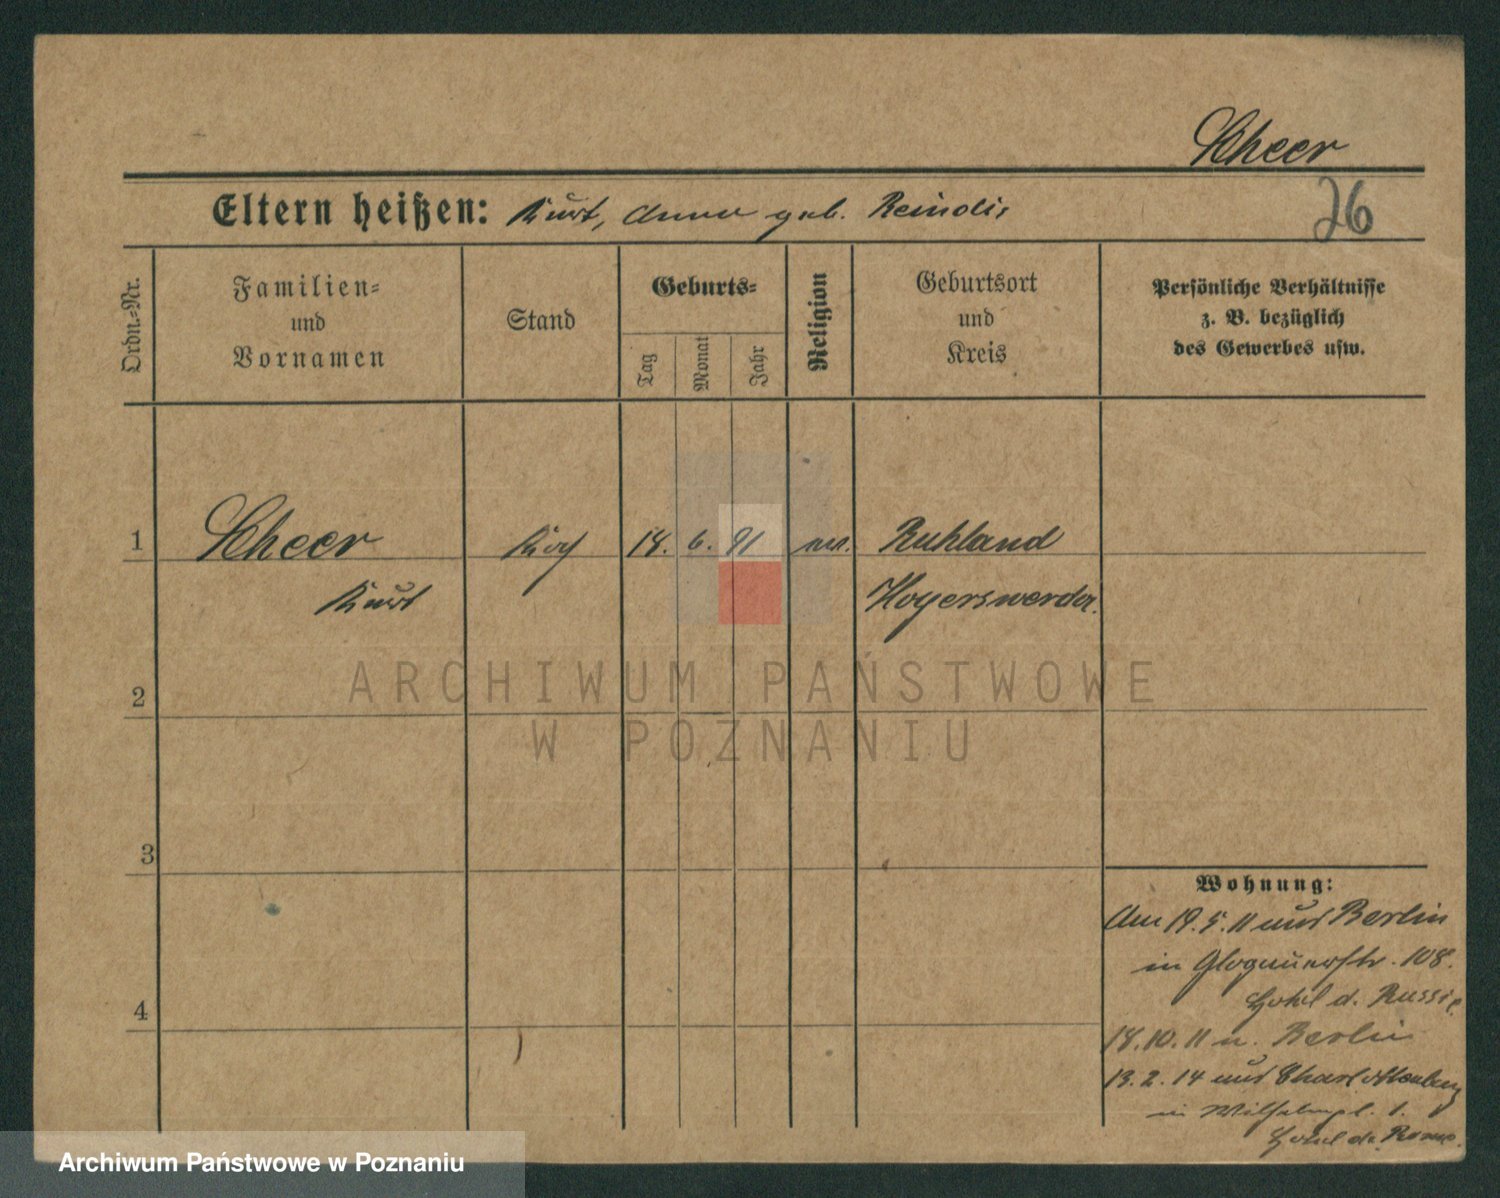 Scheer
Eltern heißen: Kurt, Anna geb. Reindis
26
Ordn.-Nr.
Familien-
und
Vornamen
Stand
Geburts-
Tag
Monat
Jahr
Religion
Geburtsort
und
Kreis
Persönliche Verhältnisse
z. B. bezüglich
des Gewerbes usw.
1 Scheer Koch 18. 6. 91 ev. Ruhland
Kurt Hoyerswerda.
2
3
4
Wohnung:
Am 19.5.11 aus Berlin
in Glogauerstr. 108.
Hotel d. Russie.
18.10.11 n. Berlin
13.2.14 aus Charlottenburg
in Wilhelmpl. 1.
Hotel de Rome.
ARCHIWUM PAŃSTWOWE
W POZNANIU
Archiwum Państwowe w Poznaniu